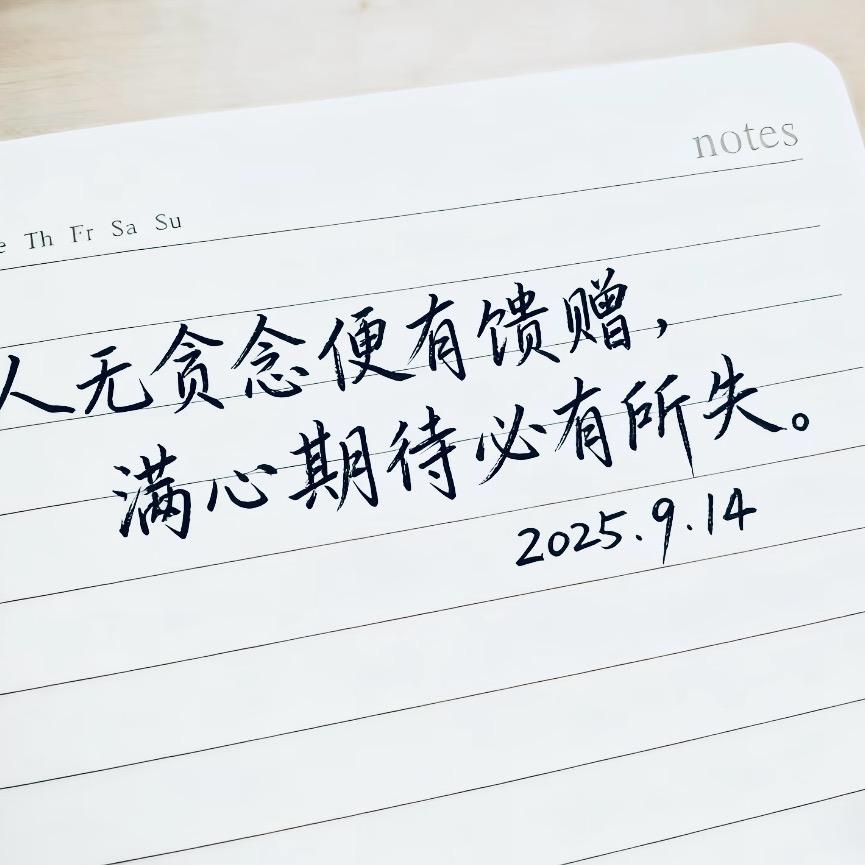 notes
Th Fr Sa Su
人无贪念便有馈赠，
满心期待必有所失。
2025.9.14